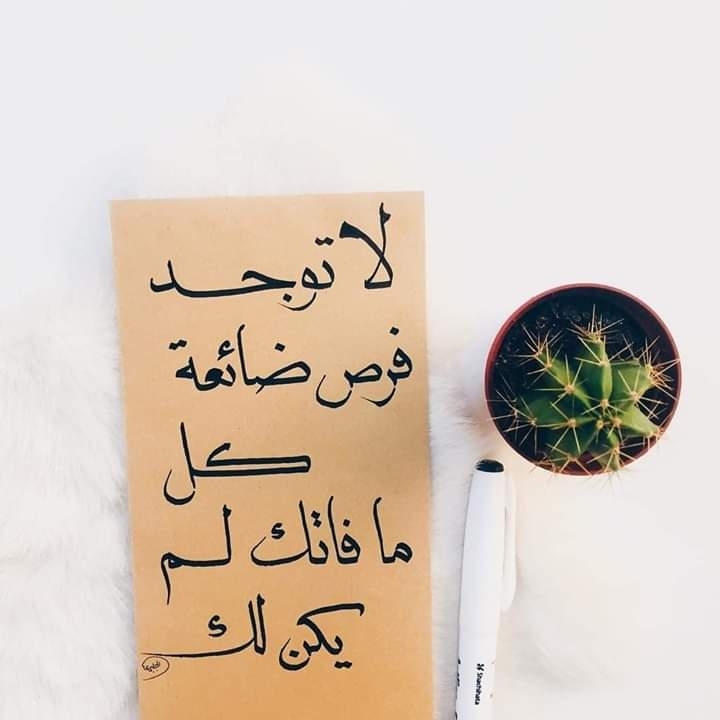 لا توجد
فرص ضائعة
كل
ما فاتك لم
يكن لك
Shachihata